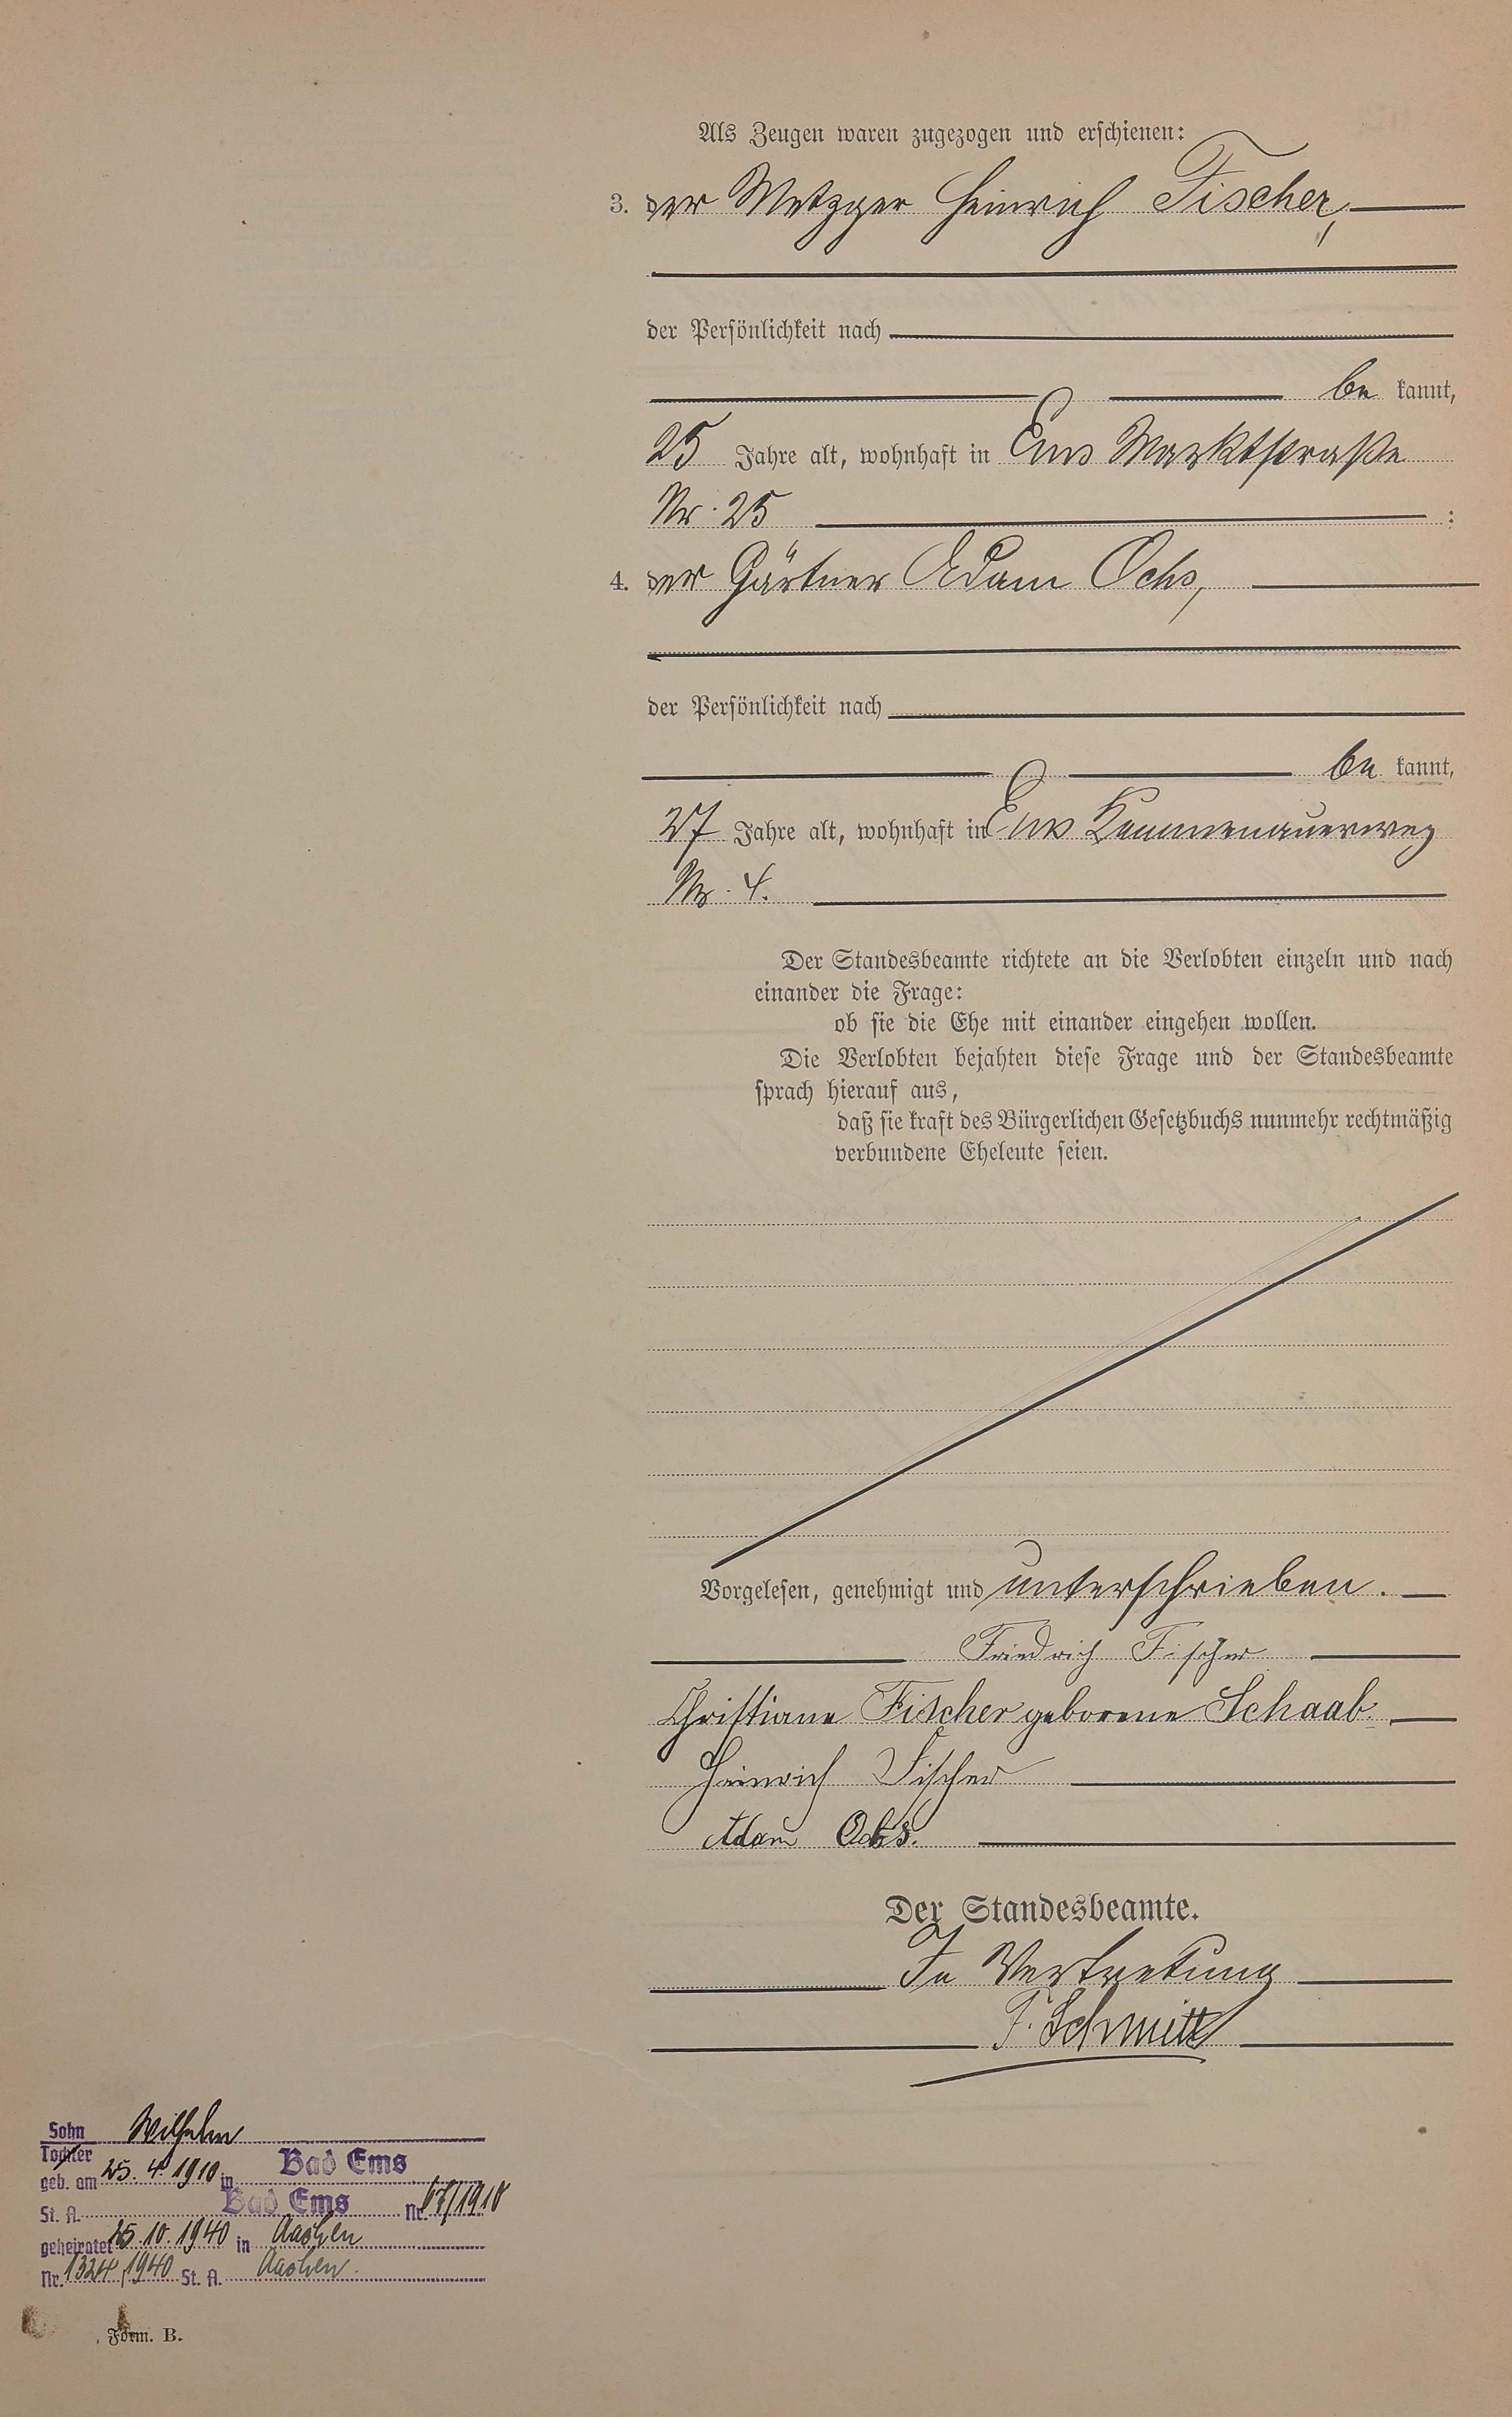 Als Zeugen waren zugezogen und erschienen:
3. der Metzger Heinrich Fischer,
der Persönlichkeit nach
be kannt,
25 Jahre alt, wohnhaft in Ems Marktstraße
Nr. 25 ;
4. der Gärtner Adam Ochs,
der Persönlichkeit nach
be kannt,
27 Jahre alt, wohnhaft in Ems Kemmenauerweg
Nr. 4.
Der Standesbeamte richtete an die Verlobten einzeln und nach
einander die Frage:
ob sie die Ehe mit einander eingehen wollen.
Die Verlobten bejahten diese Frage und der Standesbeamte
sprach hierauf aus,
daß sie kraft des Bürgerlichen Gesetzbuchs nunmehr rechtmäßig
verbundene Eheleute seien.
Vorgelesen, genehmigt und unterschrieben.
Friedrich Fischer
Christiane Fischer geborene Schaab
Heinrich Fischer
Adam Ochs.
Der Standesbeamte.
In Vertretung
F. Schmitt
Sohn Wilhelm
Tochter
geb. am 25. 4. 1910 in Bad Ems
St. A. Bad Ems Nr. 67/1910
geheiratet 25. 10. 1940 in Aachen
Nr. 1324/1940 St. A. Aachen.
Form. B.